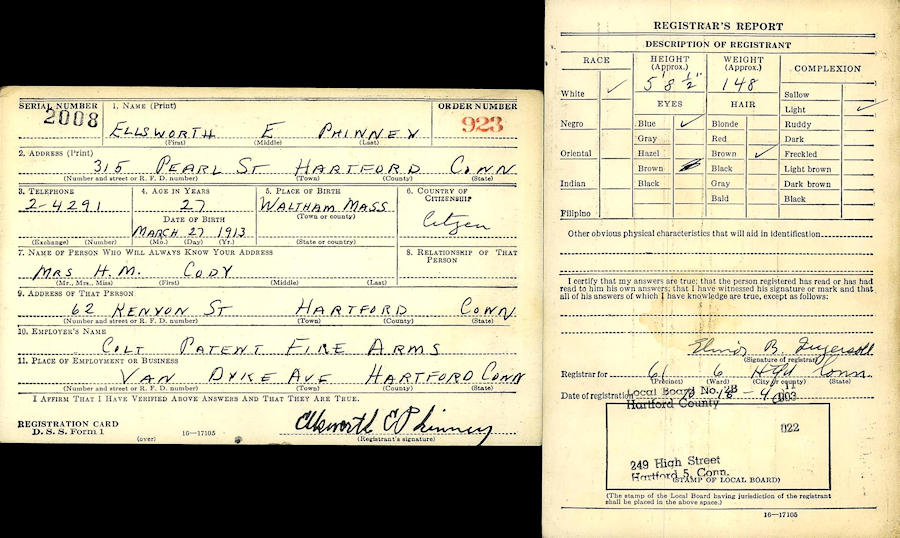 SERIAL NUMBER
2008
1. NAME (Print)
ELLSWORTH E PHINNEY
(First) (Middle) (Last)
ORDER NUMBER
923
2. ADDRESS (Print)
315 PEARL ST HARTFORD CONN
(Number and street or R. F. D. number) (Town) (County) (State)
3. TELEPHONE
2-4291
(Exchange) (Number)
4. AGE IN YEARS
27
DATE OF BIRTH
MARCH 27 1913
(Mo.) (Day) (Yr.)
5. PLACE OF BIRTH
WALTHAM MASS
(Town or county)
(State or country)
6. COUNTRY OF
CITIZENSHIP
Citizen
7. NAME OF PERSON WHO WILL ALWAYS KNOW YOUR ADDRESS
MRS H. M. CODY
(Mr., Mrs., Miss) (First) (Middle) (Last)
8. RELATIONSHIP OF THAT
PERSON
9. ADDRESS OF THAT PERSON
62 KENYON ST HARTFORD CONN.
(Number and street or R. F. D. number) (Town) (County) (State)
10. EMPLOYER'S NAME
COLT PATENT FIRE ARMS
11. PLACE OF EMPLOYMENT OR BUSINESS
VAN DYKE AVE HARTFORD CONN
(Number and street or R. F. D. number) (Town) (County) (State)
I AFFIRM THAT I HAVE VERIFIED ABOVE ANSWERS AND THAT THEY ARE TRUE.
REGISTRATION CARD
D. S. S. Form 1
(over)
16—17105
Ellsworth E Phinney
(Registrant's signature)
REGISTRAR'S REPORT
DESCRIPTION OF REGISTRANT
RACE
White ✓
Negro
Oriental
Indian
Filipino
HEIGHT
(Approx.)
5' 8 ½"
WEIGHT
(Approx.)
148
EYES
Blue ✓
Gray
Hazel
Brown
Black
HAIR
Blonde
Red
Brown ✓
Black
Gray
Bald
COMPLEXION
Sallow
Light ✓
Ruddy
Dark
Freckled
Light brown
Dark brown
Black
Other obvious physical characteristics that will aid in identification
I certify that my answers are true; that the person registered has read or has had
read to him his own answers; that I have witnessed his signature or mark and that
all of his answers of which I have knowledge are true, except as follows:
B. Ingersoll
(Signature of registrar)
Registrar for 61 6 Htfd Conn.
(Precinct) (Ward) (City or county) (State)
Date of registration 10 16 - 40
Local Board No. 2B 11
Hartford County 003
022
249 High Street
Hartford 5, Conn.
(STAMP OF LOCAL BOARD)
(The stamp of the Local Board having jurisdiction of the registrant
shall be placed in the above space.)
16—17105